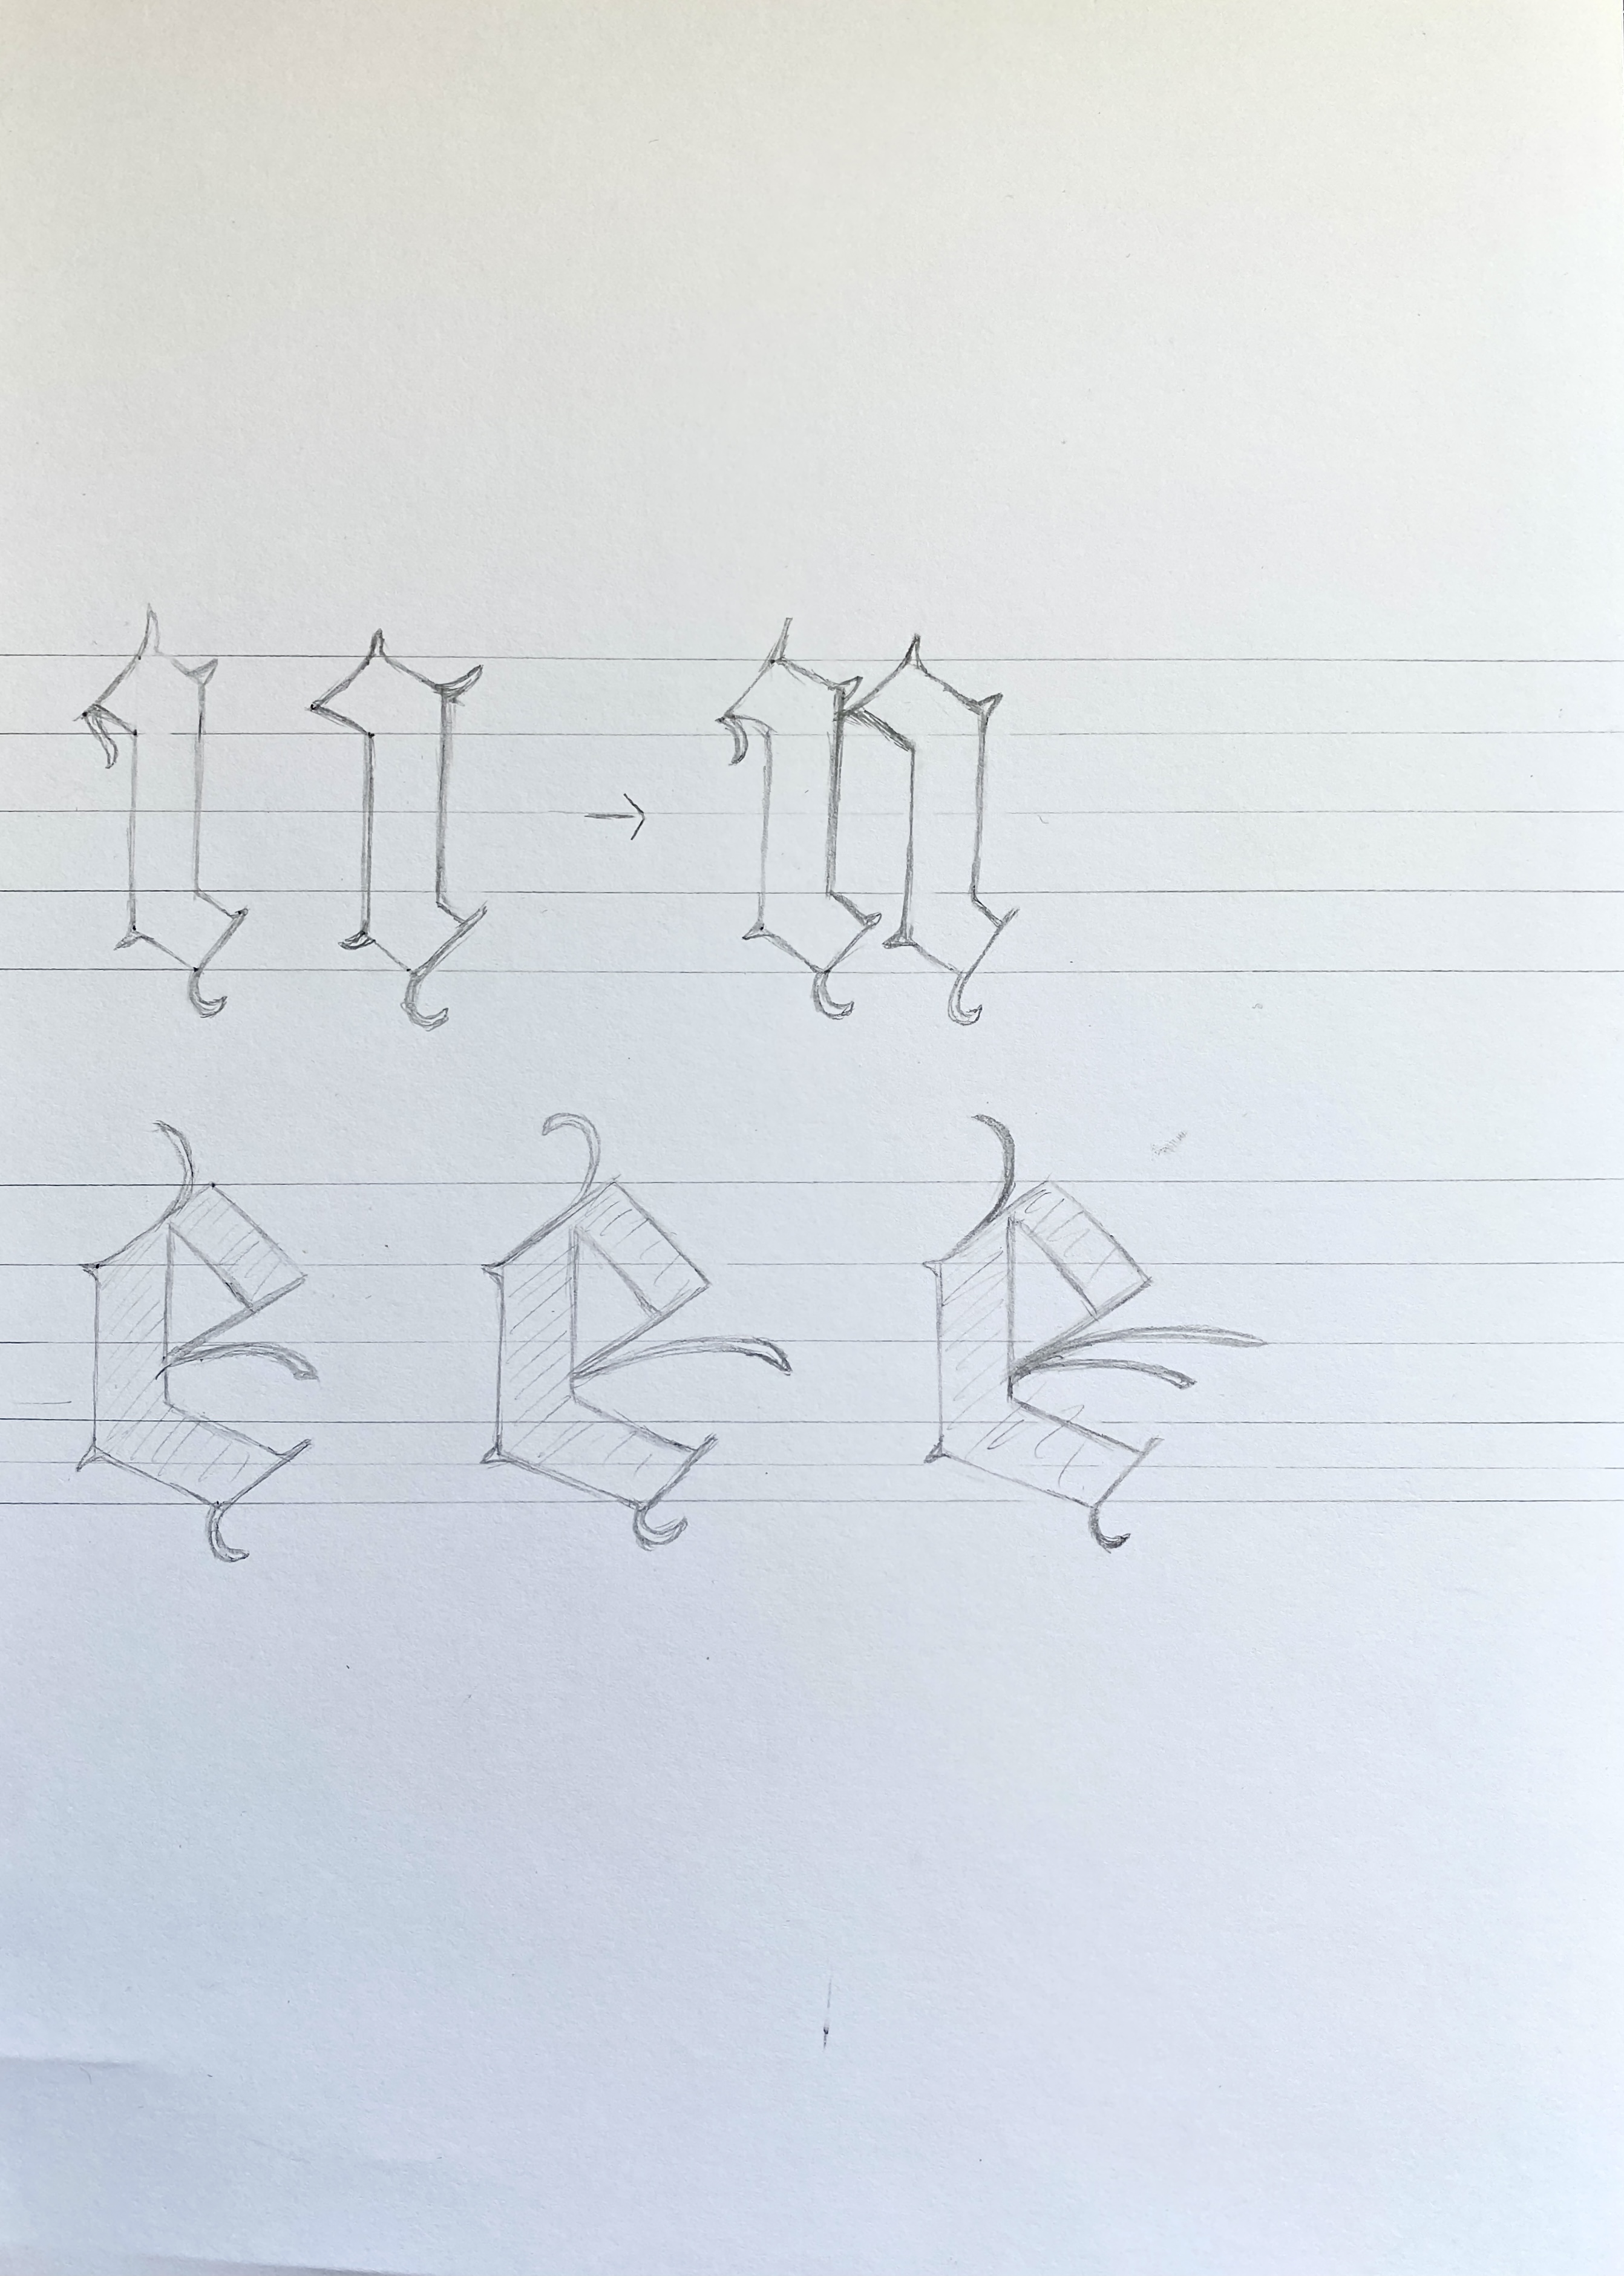 ı ı → n
e e e